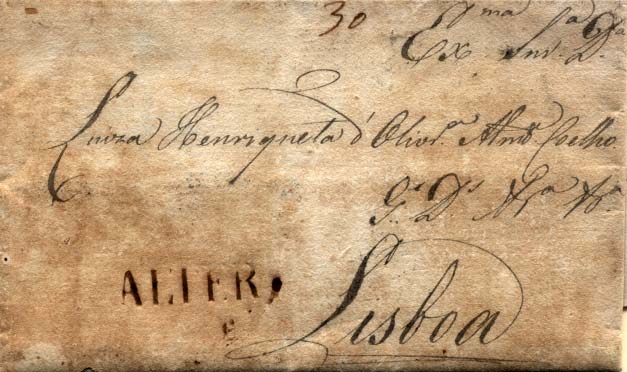 30
Exma Snra Da
Luoza Henriqueta d' Olivra Almda Coelho
Gs Ds
ALTER
Lisboa